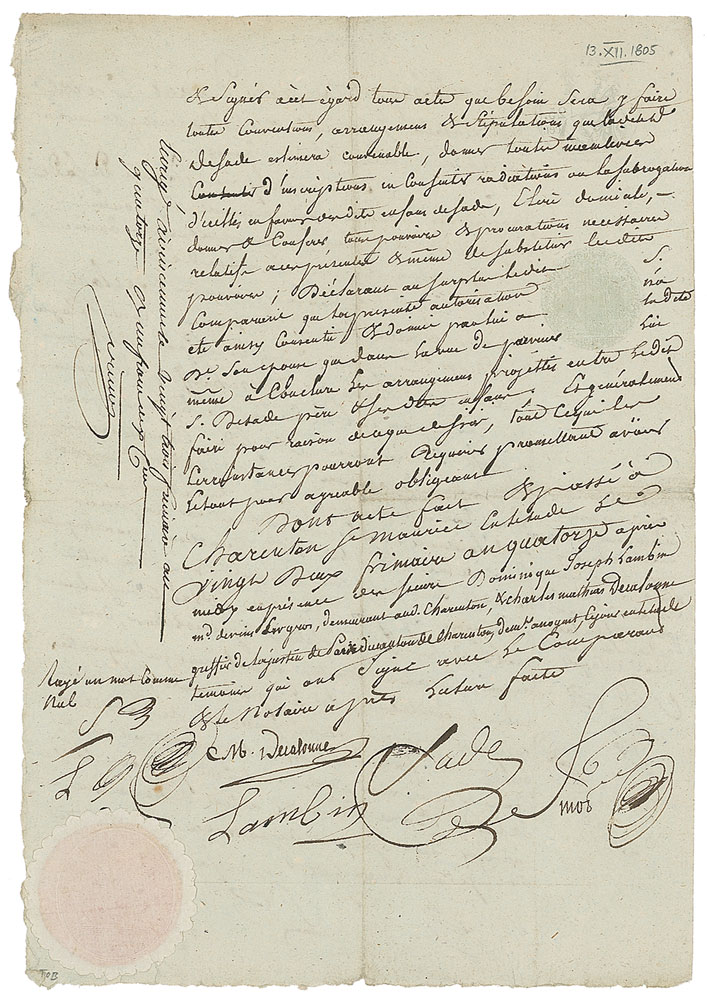 13.XII.1805
& Signer à cet égard tous acte que besoin sera y faire
toute Conventions, arrangemens & Stipulations que ladite de
de sade estimera convenable, donner toute
d'inscriptions en Consentir radiations ou la subrogation
d'icelles en faveur desdits enfans de sade, Elire domicile, –
donner & Conferer tous pouvoirs & procurations necessaire
relatifs aux présentes & même de substituer lesdits
pouvoirs ; Déclarant au surplus ledit S.
Comparant que la présente autorisation n'a
été ainsi Consentie & donnée par lui à ladite
De. Son epouse que dans la vue de parvenir lui
même à Conclure les arrangemens projettés entre ledit
S. Desade père & ses dits enfans. Et généralement
faire pour raison de ce que dessus, tout ce que les
Circonstances pourront Requerir promettant avoir
le tout pour agreable obligeant
Dont acte fait & passé à
Charenton St Maurice en l'etude le
vingt Deux frimaire an quatorze après
midy en présence des sieurs Dominique Joseph Lambin
md de vins En gros, demeurant aud. Charenton, & Charles mathias Decalonne
greffier de la justice de Paix du canton de Charenton, demt. a nogent,
temoins qui ont Signé avec le Comparant
& le Notaire après Lecture faite
Rayé un mot Comme
Nul
S
L
C M. Decalonne
Sade
Lambin
mot
vingt trois frimaire an
quatorze
TJOB